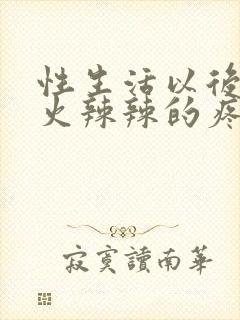 性生活以後
火辣辣的疼
寂寞讀南華